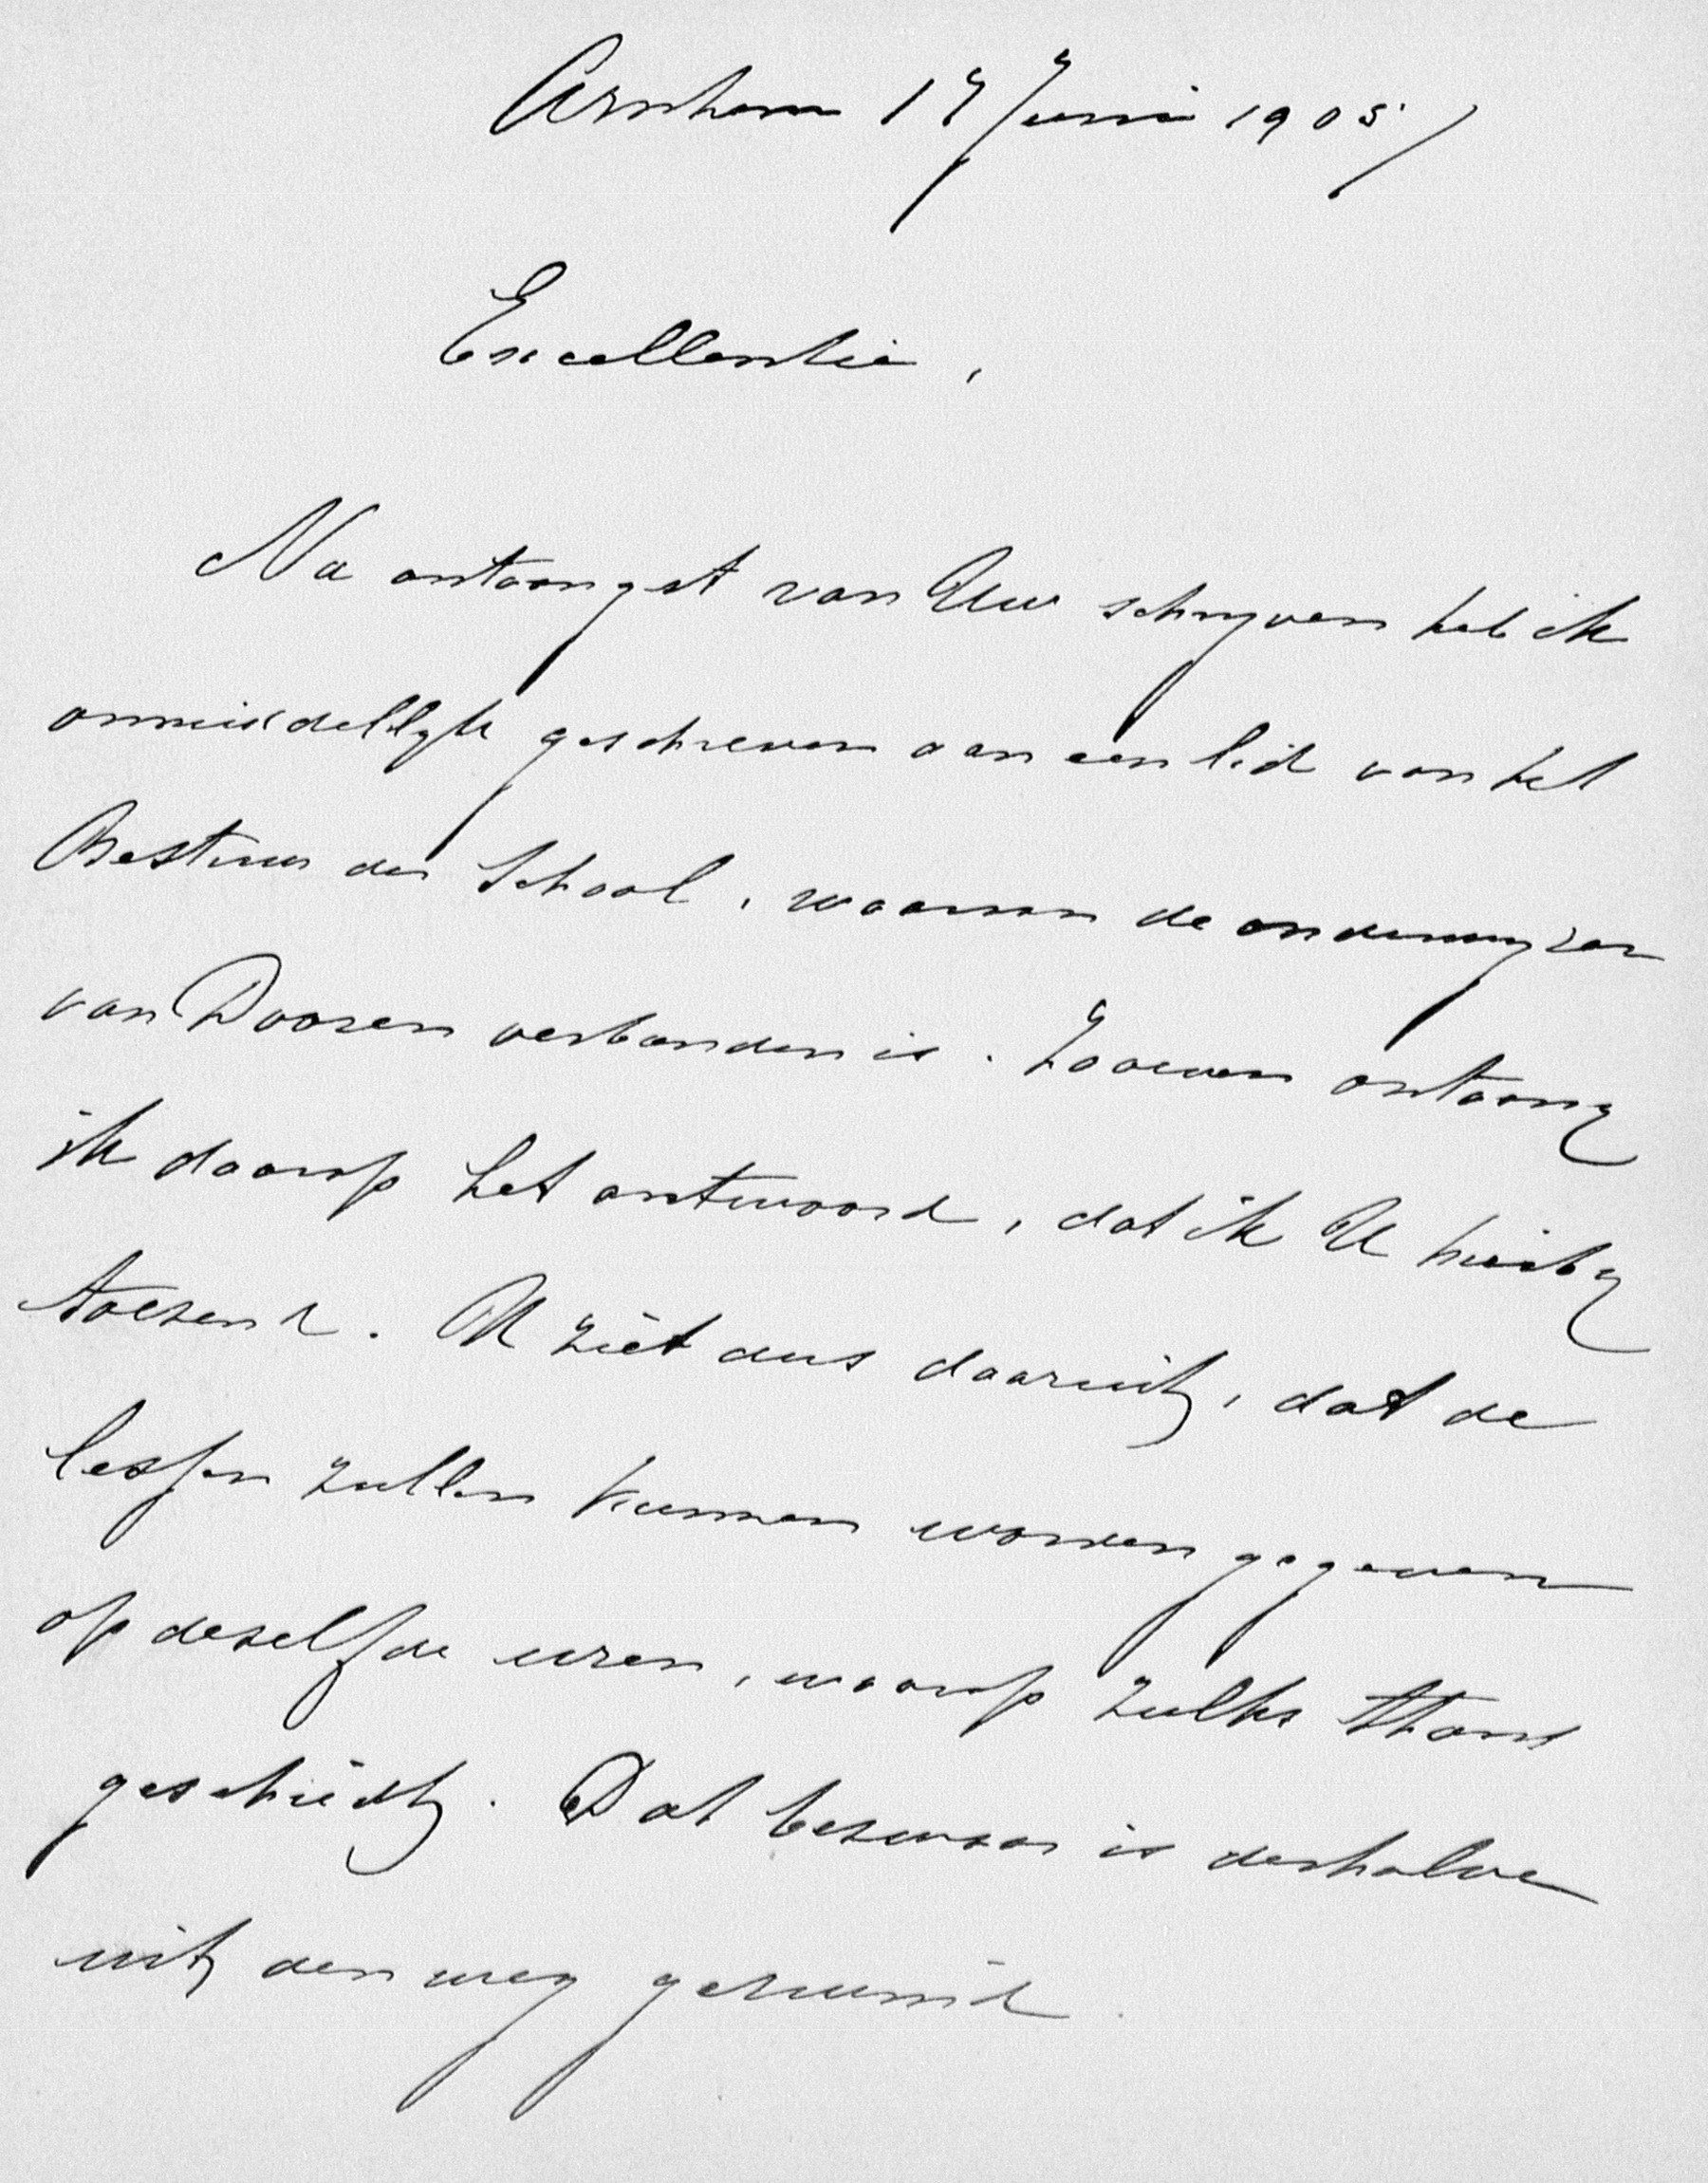 Arnhem 17 Juni 1905/
Excellentie,
Na ontvangst van Uw schrijven heb ik
onmiddellijk geschreven aan een lid van het
Bestuur der School, waaraan de onderwijzer
van Doorn verbonden is. Zooeven ontvang
ik daarop het antwoord, dat ik U hierbij
toezend. U ziet dus daaruit, dat de
lessen zullen kunnen worden gegeven
op dezelfde uren, waarop zulks thans
geschiedt. Dat bezwaar is derhalve
uit den weg geruimd.